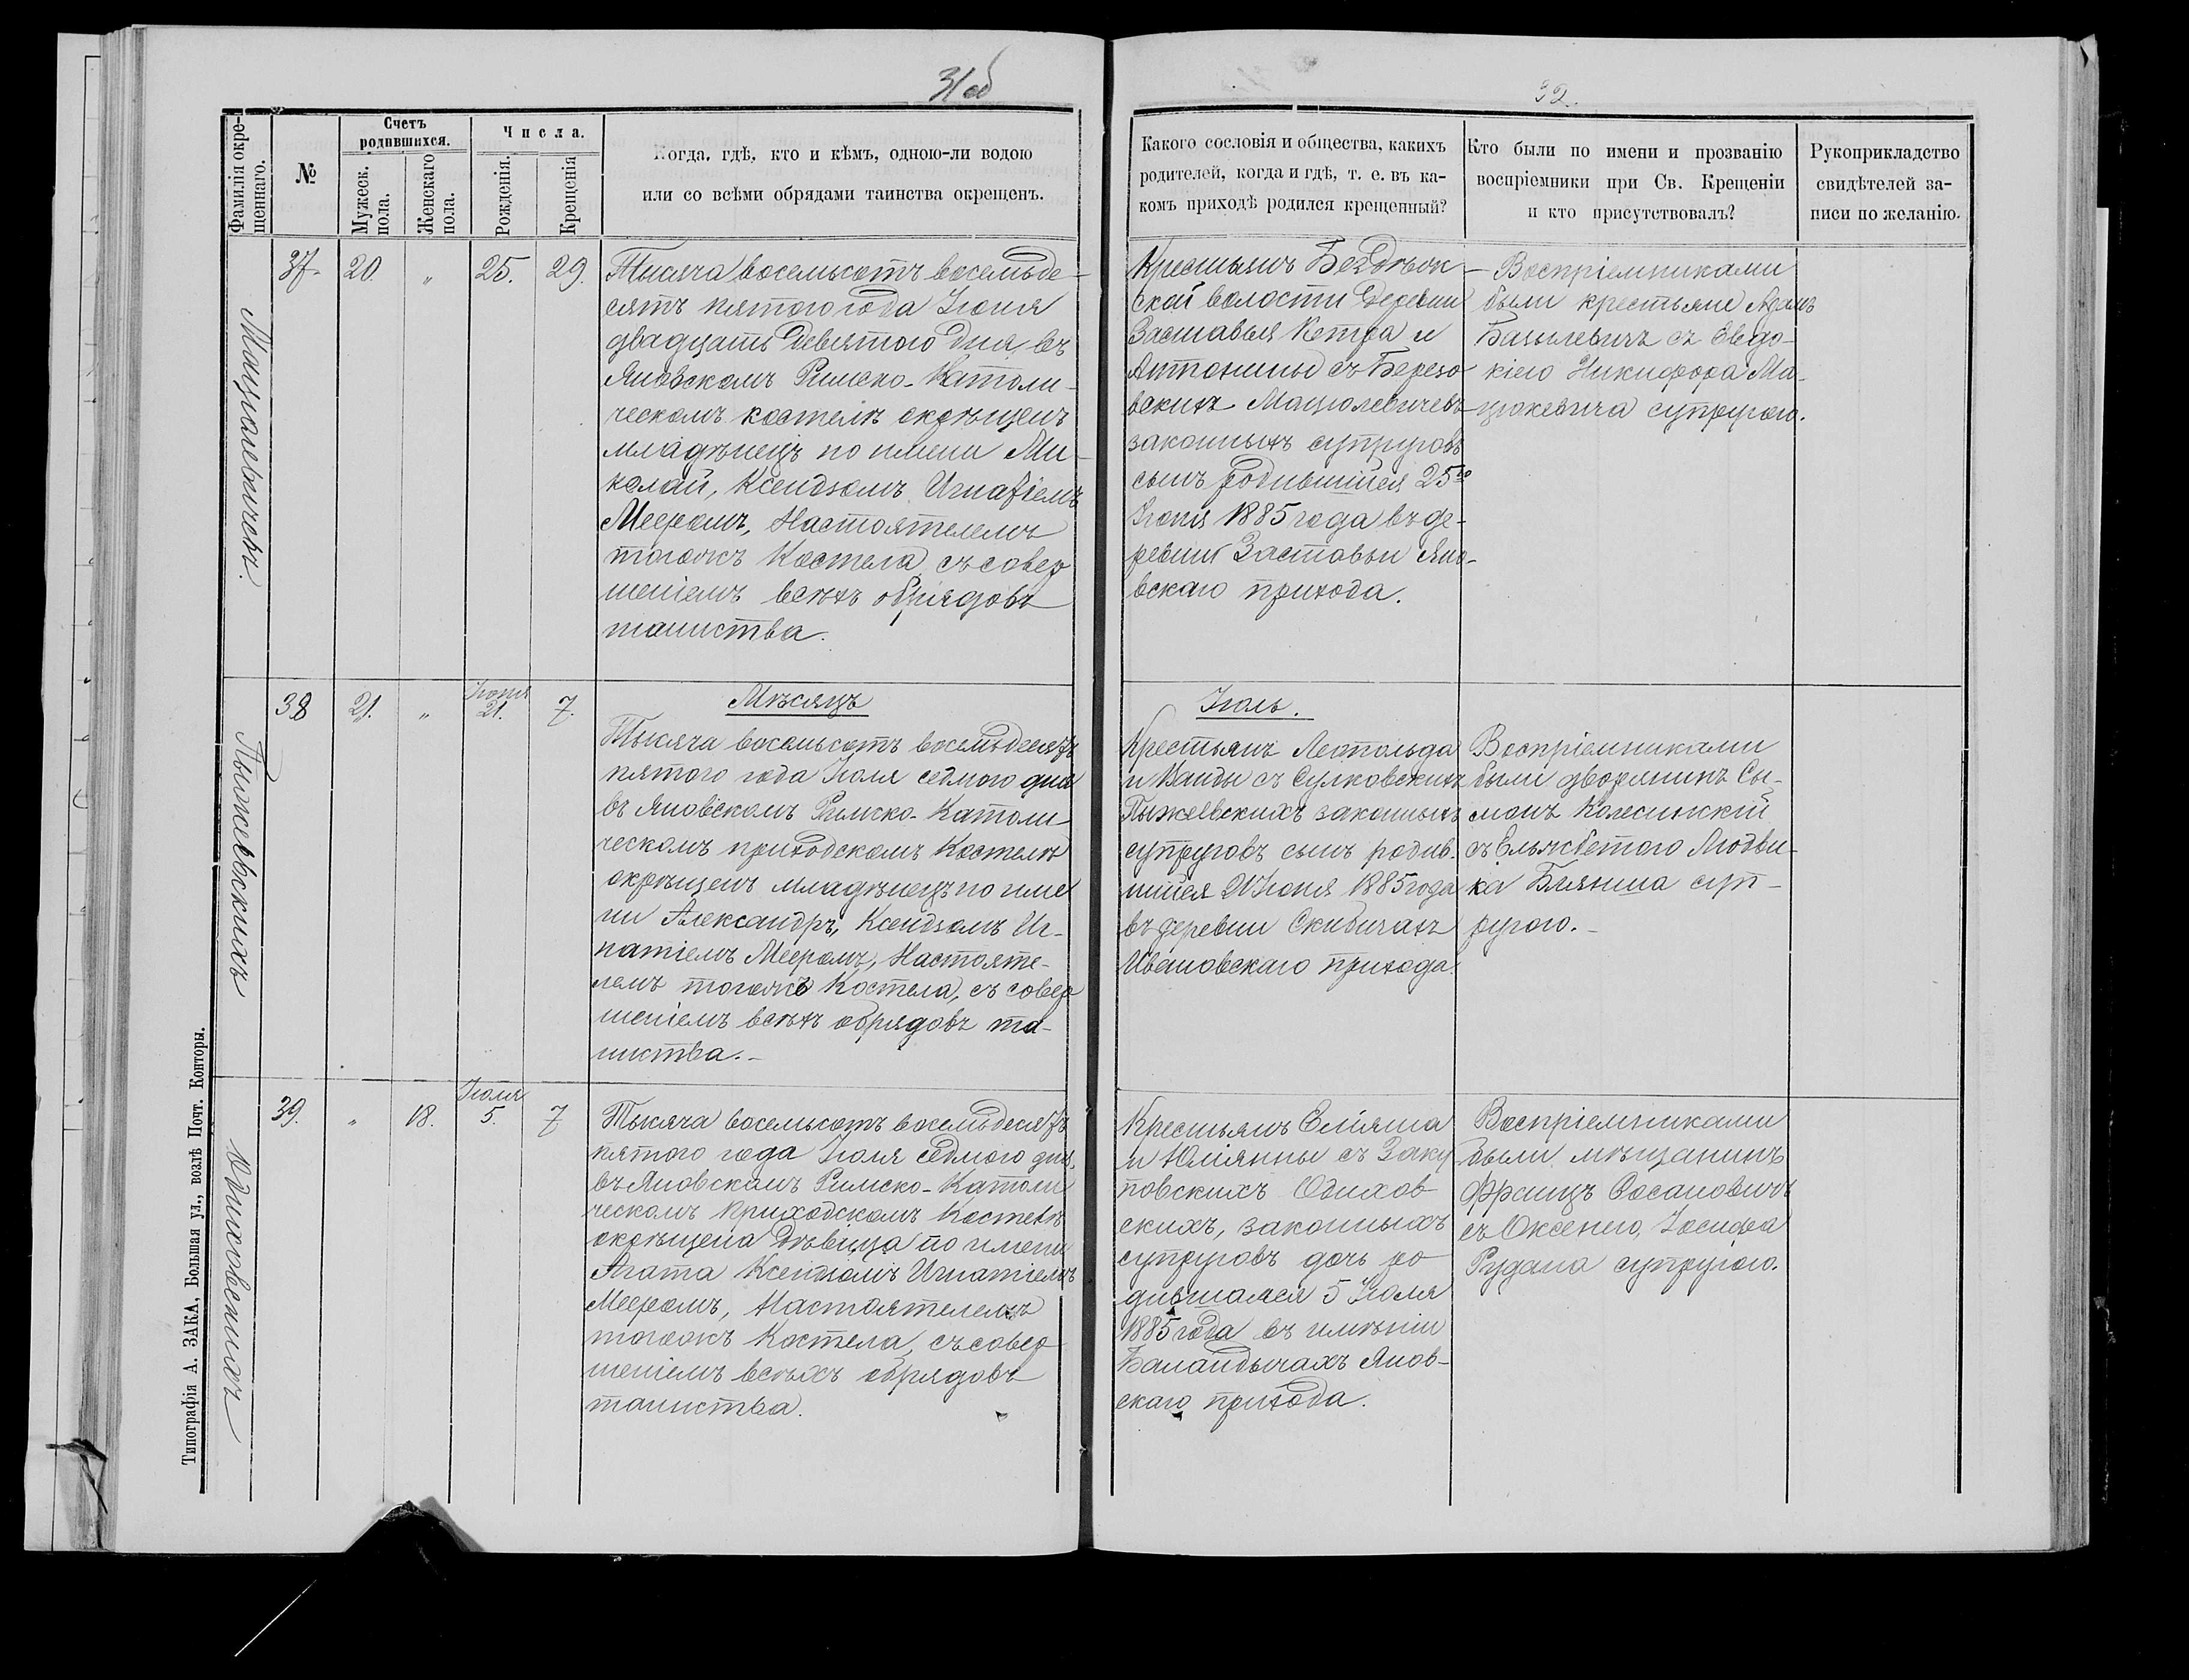 31об
32.
Фамилія окре-
щеннаго.
№
Счетъ
родившихся.
Мужеск.
пола.
Женскаго
пола.
Числа.
Рожденія.
Крещенія
Когда, гдѣ, кто и кѣмъ, одною-ли водою
или со всѣми обрядами таинства окрещенъ.
Какого сословія и общества, какихъ
родителей, когда и гдѣ, т. е. въ ка-
комъ приходѣ родился крещенный?
Кто были по имени и прозванію
воспріемники при Св. Крещеніи
и кто присутствовалъ?
Рукоприкладство
свидѣтелей за-
писи по желанію.
Мацюлевичевъ.
37.
20.
"
25.
29.
Тысяча восемьсотъ восемьде-
сятъ пятого года Іюня
двадцать девятого дня, въ
Яновскомъ Римско-Католи-
ческомъ костелѣ окрѣщенъ
младѣнецъ по имени Ми-
колай, Ксендзомъ Игнатіемъ
Меромъ, Настоятелемъ
тогожъ Костела, съ совер
шеніемъ всѣхъ обрядовъ
таинства.
Крестьянъ Бездѣж
ской волости деревни
Заставья Петра и
Антонины съ Березо
вскихъ Мацюлевичевъ
законныхъ супруговъ
сынъ родившійся 25го
Іюня 1885 года въ де-
ревни Заставьи Яно-
вскаго прихода.
– Воспріемниками
были крестьяне Адамъ
съ Евдо-
кіею Никифора Ма-
цюкевича супругою.
Пыжевскихъ
38
21.
"
Іюня
21.
7.
Мѣсяцъ
Іюль.
Тысяча восемьсотъ восемьдесятъ
пятого года Іюля седмого дня
въ Яновскомъ Римско-Католи
ческомъ приходскомъ Костелѣ
окрѣщенъ младѣнецъ по име
ни Александръ, Ксендзомъ Иг-
натіемъ Меромъ, Настояте-
лемъ тогожъ Костела, съ совер
шеніемъ всѣхъ обрядовъ та-
инства.–
Крестьянъ Леопольда
и Ванды съ Сулковскихъ
Пыжевскихъ законныхъ
супруговъ сынъ родив-
шійся 21 Іюня 1885 года
въ деревни Скибичахъ
Ивановскаго прихода.
Воспріемниками
были дворянинъ Сы-
монъ Колесинскій
съ Ельжбетою Людви-
ка суп-
ругою.–
39.
"
18.
Іюля
5.
7
Тысяча восемьсотъ восемьдесятъ
пятого года Іюля седмого дня,
въ Яновскомъ Римско-Католи
ческомъ приходскомъ Костелѣ
окрѣщена дѣвица по имени
Агата Ксендзомъ Игнатіемъ
Меромъ, Настоятелемъ
тогожъ Костела, съ совер
шеніемъ всѣхъ обрядовъ
таинства.
Крестьянъ
и Юліянны съ Заку
повскихъ Одихов
скихъ, законныхъ
супруговъ дочь ро
дившаяся 5 Іюля
1885 года въ имѣніи
Баландычахъ Янов-
скаго прихода.
Воспріемниками
были мѣщанинъ
Францъ
съ Оксенею, Іосифа
Рудака супругою.
Типографія А. ЗАКА, Большая ул., возлѣ Почт. Конторы.